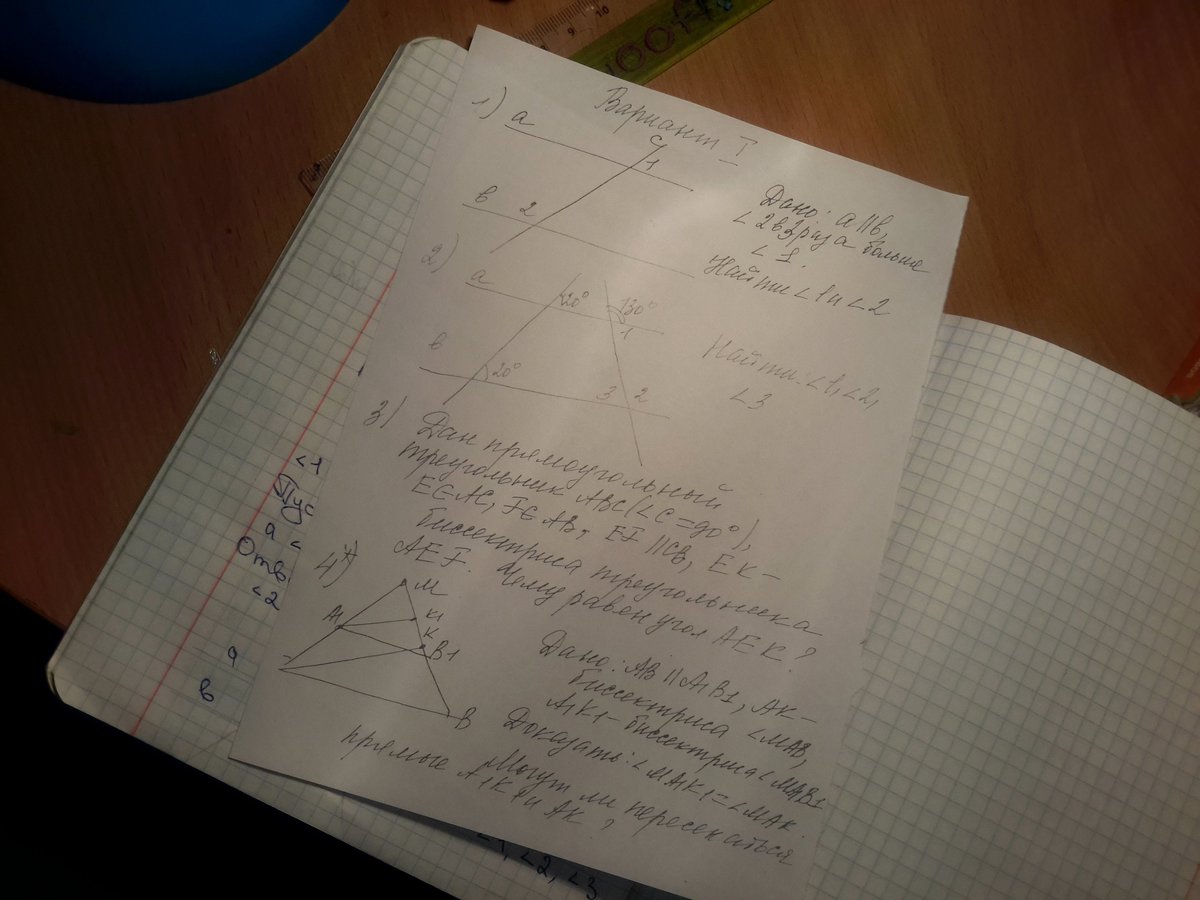 Вариант I
1)
a
c
1
b
2
Дано: a∥b,
∠2 в 3 раза больше
∠1.
Найти ∠1 и ∠2
2)
a
20°
130°
1
b
20°
3
2
Найти: ∠1, ∠2,
∠3
3)
Дан прямоугольный
треугольник ABC (∠C=90°),
E∈AC, F∈AB, EF∥CB, EK –
биссектриса треугольника
AEF. Чему равен угол AEK?
4*)
M
K1
A1
K
B1
B
Дано: AB∥A1B1, AK –
биссектриса ∠MAB,
A1K1 – биссектриса ∠MA1B1
Доказать: ∠MA1K1=∠MAK.
Могут ли пересекаться
прямые A1K1 и AK?
∠1
Пус
a
Отв
∠2
a
b
∠1, ∠2, ∠3